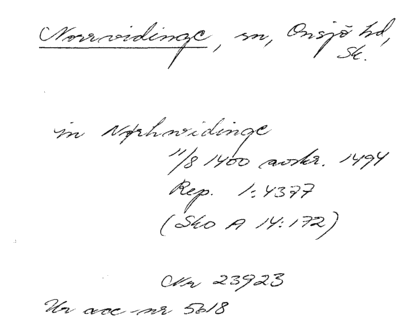 Norrvidinge, sn, Onsjö hd,
Sk.
in Nørhwidinge
11/8 1400 avskr. 1494
Rep. 1:4377
(Sko A 14:172)
CNr 23923
Ur acc nr 5618